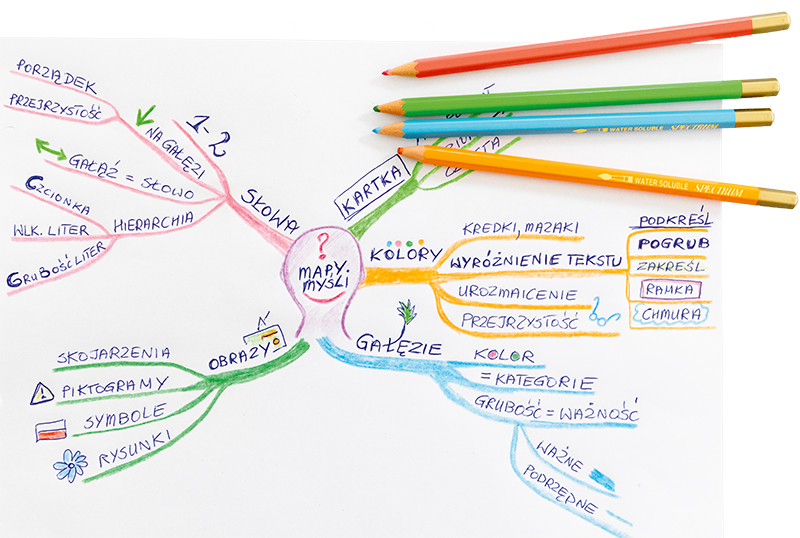 PORZĄDEK
PRZEJRZYSTOŚĆ
NA GAŁĘZI
1-2
GAŁĄŹ = SŁOWO
CZCIONKA
WLK. LITER
GRUBOŚĆ LITER
HIERARCHIA
SŁOWA
KARTKA
WATER SOLUBLE SPECTRUM
WATER SOLUBLE SPECTRUM
?
MAPY
MYŚLI
KOLORY
KREDKI, MAZAKI
WYRÓŻNIENIE TEKSTU
UROZMAICENIE
PRZEJRZYSTOŚĆ
PODKREŚL
POGRUB
ZAKREŚL
RAMKA
CHMURA
OBRAZY
SKOJARZENIA
PIKTOGRAMY
SYMBOLE
RYSUNKI
GAŁĘZIE
KOLOR
= KATEGORIE
GRUBOŚĆ = WAŻNOŚĆ
WAŻNE
PODRZĘDNE